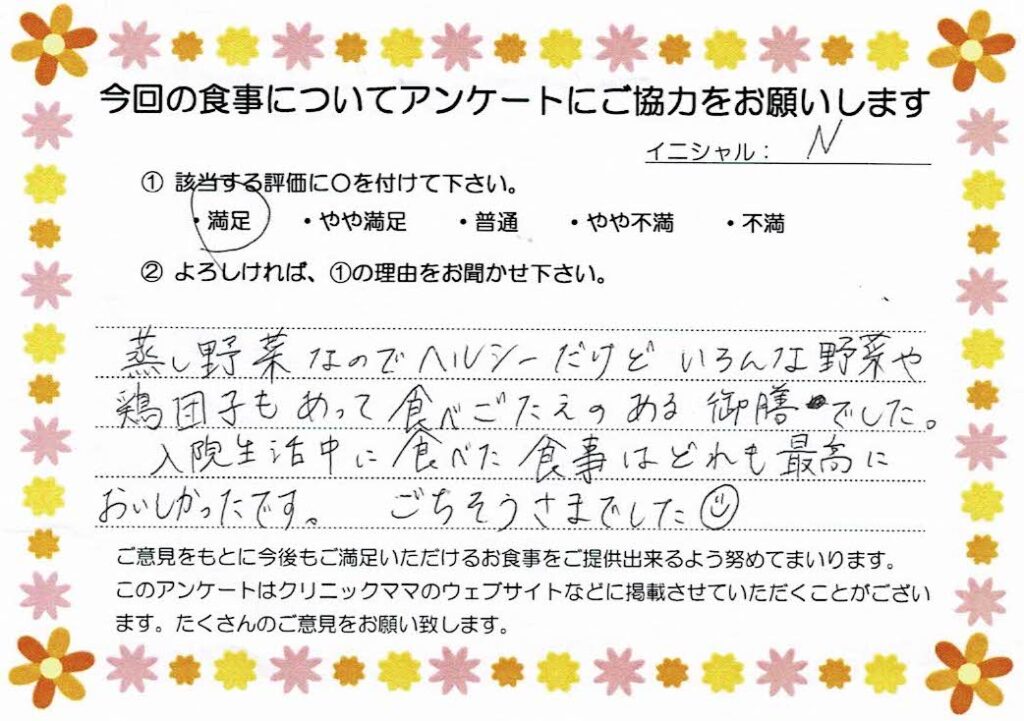 今回の食事についてアンケートにご協力をお願いします
イニシャル： N
① 該当する評価に〇を付けて下さい。
・満足 ・やや満足 ・普通 ・やや不満 ・不満
② よろしければ、①の理由をお聞かせ下さい。
蒸し野菜なのでヘルシーだけど いろんな野菜や
鶏団子もあって食べごたえのある御膳でした。
入院生活中に食べた食事はどれも最高に
おいしかったです。 ごちそうさまでした
ご意見をもとに今後もご満足いただけるお食事をご提供出来るよう努めてまいります。
このアンケートはクリニックママのウェブサイトなどに掲載させていただくことがござい
ます。たくさんのご意見をお願い致します。